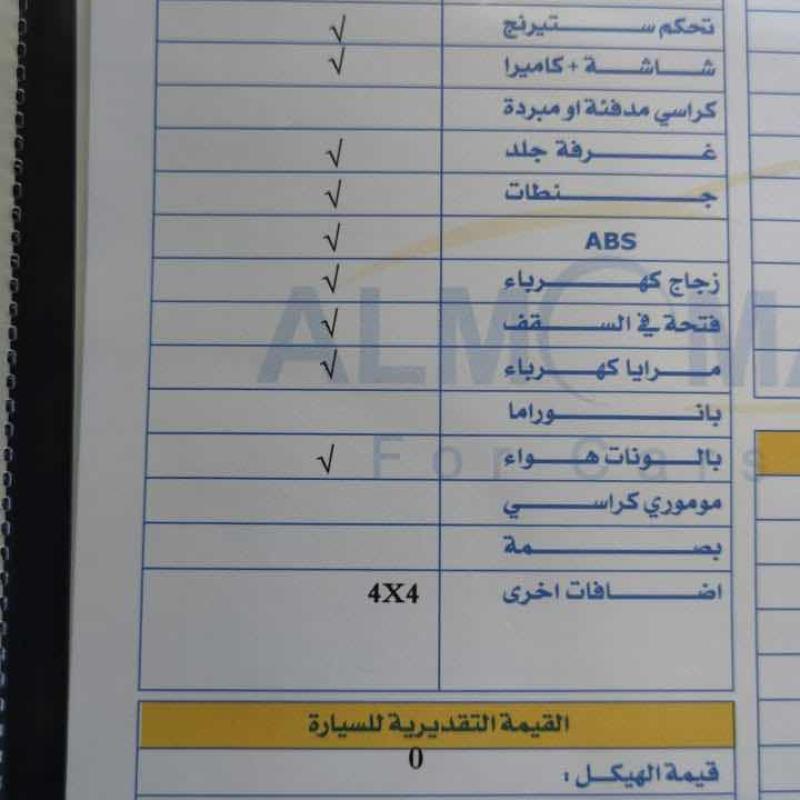 تحكم ستيرنج √
شاشة + كاميرا √
كراسي مدفئة او مبردة
غرفة جلد √
جنطات √
ABS √
زجاج كهرباء √
فتحة في السقف √
مرايا كهرباء √
بانوراما
بالونات هواء √
موموري كراسي
بصمة
اضافات اخرى 4X4
القيمة التقديرية للسيارة
قيمة الهيكل : 0
ALMOMA
For Cars